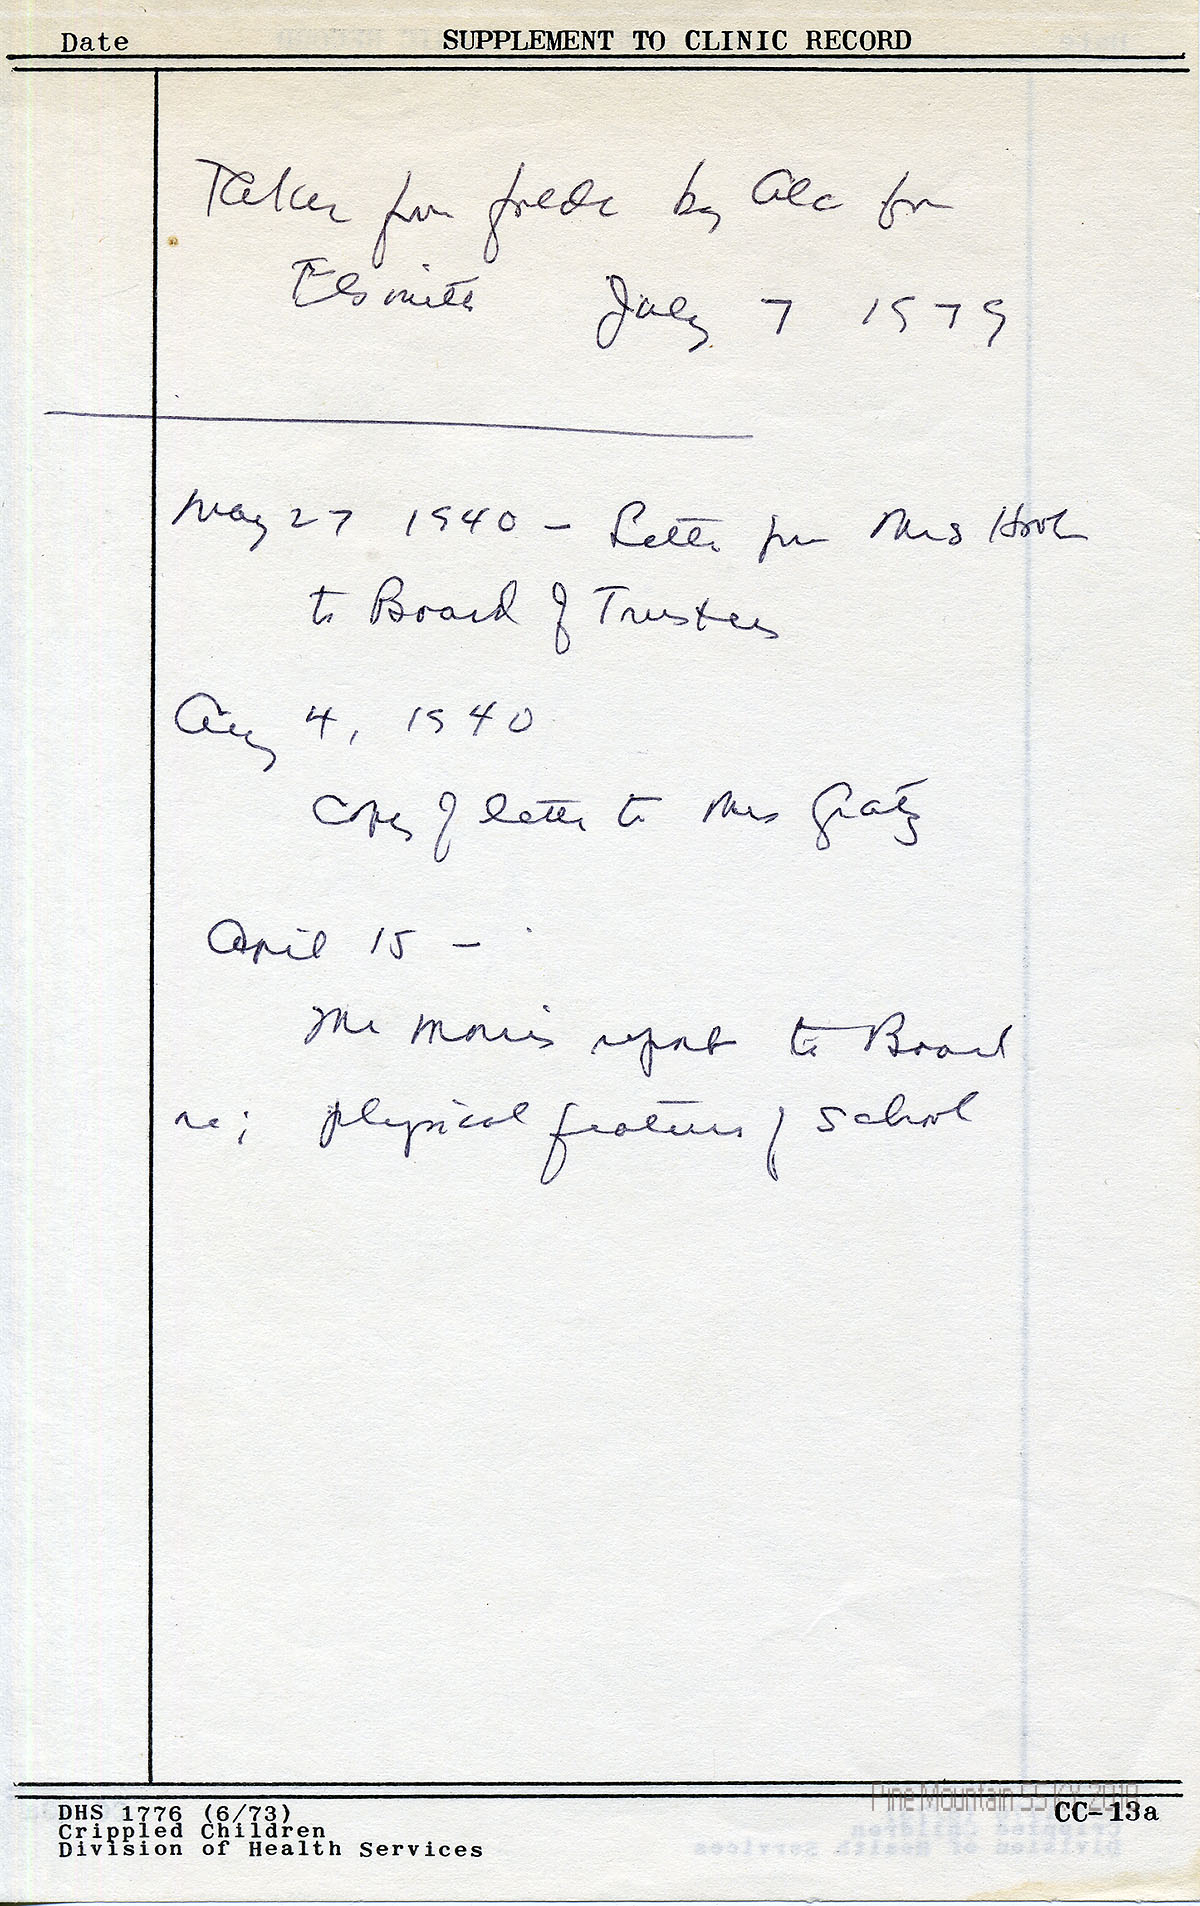 Date SUPPLEMENT TO CLINIC RECORD
Taken from folder by for
July 7 1979
May 27 1940 - Letter from Mrs Hook
to Board of Trustees
Aug 4, 1940
Copy of letter to Mrs Gratz
April 15 -
Mr Morris report to Board
re; physical features of School
Pine Mountain SS KY 2018
DHS 1776 (6/73) CC-13a
Crippled Children
Division of Health Services